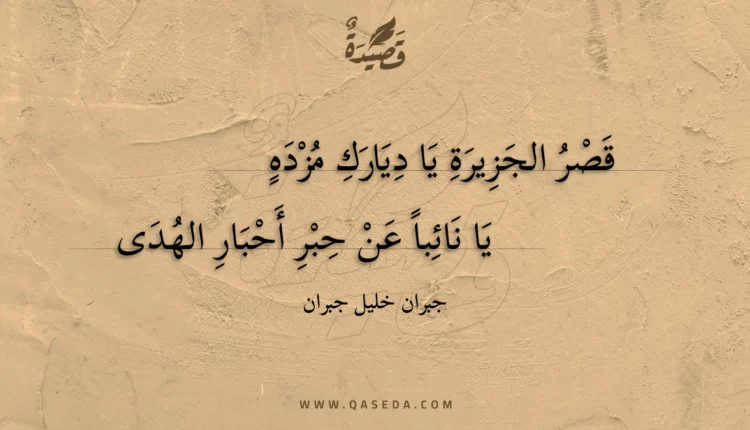 قَصِيدَةٌ
قَصْرُ الجَزِيرَةِ يَا دِيَارَكِ مُزْدَهٍ
يَا نَائِباً عَنْ حِبْرِ أَحْبَارِ الهُدَى
جبران خليل جبران
WWW.QASEDA.COM